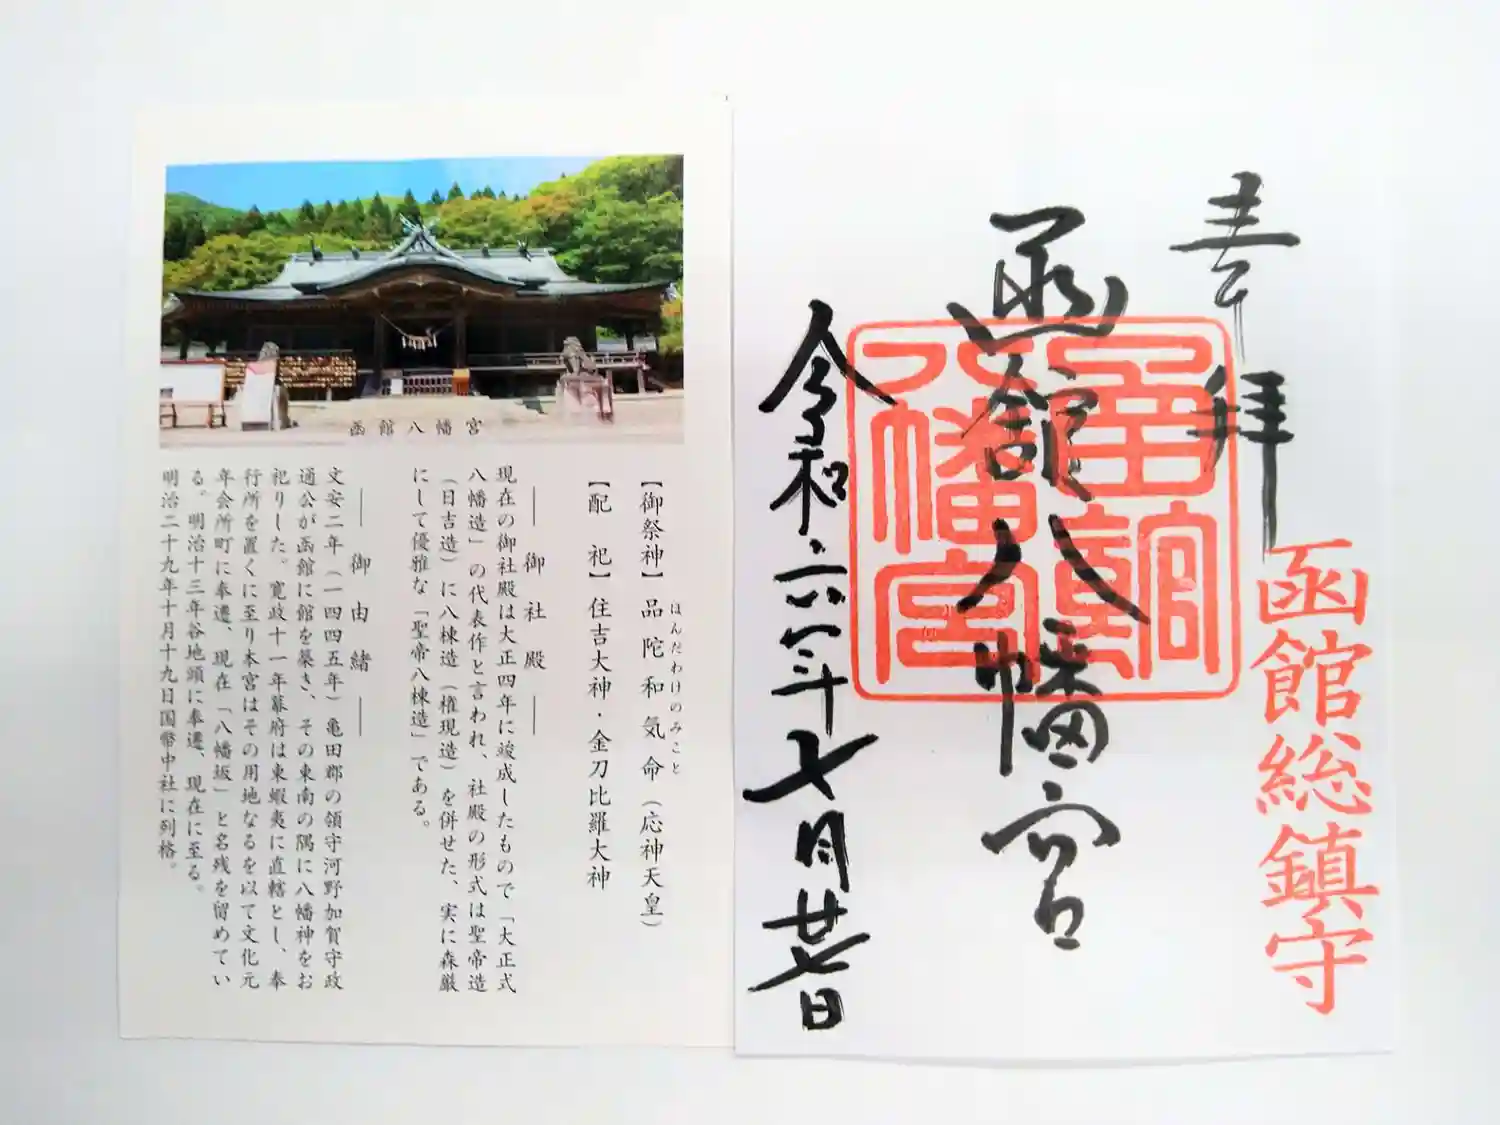 函館八幡宮
【御祭神】品陀和気命（応神天皇）
ほんだわけのみこと
【配　祀】住吉大神・金刀比羅大神
――御社殿――
現在の御社殿は大正四年に竣成したもので「大正式
八幡造」の代表作と言われ、社殿の形式は聖帝造
（日吉造）に八棟造（権現造）を併せた、実に森厳
にして優雅な「聖帝八棟造」である。
――御由緒――
文安二年（一四四五年）亀田郡の領守河野加賀守政
通公が函館に館を築き、その東南の隅に八幡神をお
祀りした。寛政十一年幕府は東蝦夷に直轄とし、奉
行所を置くに至り本宮はその用地なるを以て文化元
年会所町に奉遷、現在「八幡坂」と名残を留めてい
る。明治十三年谷地頭に奉遷、現在に至る。
明治二十九年十月十九日国幣中社に列格。
奉拝
函館総鎮守
函館八幡宮
函館
八幡宮
令和六年七月廿七日